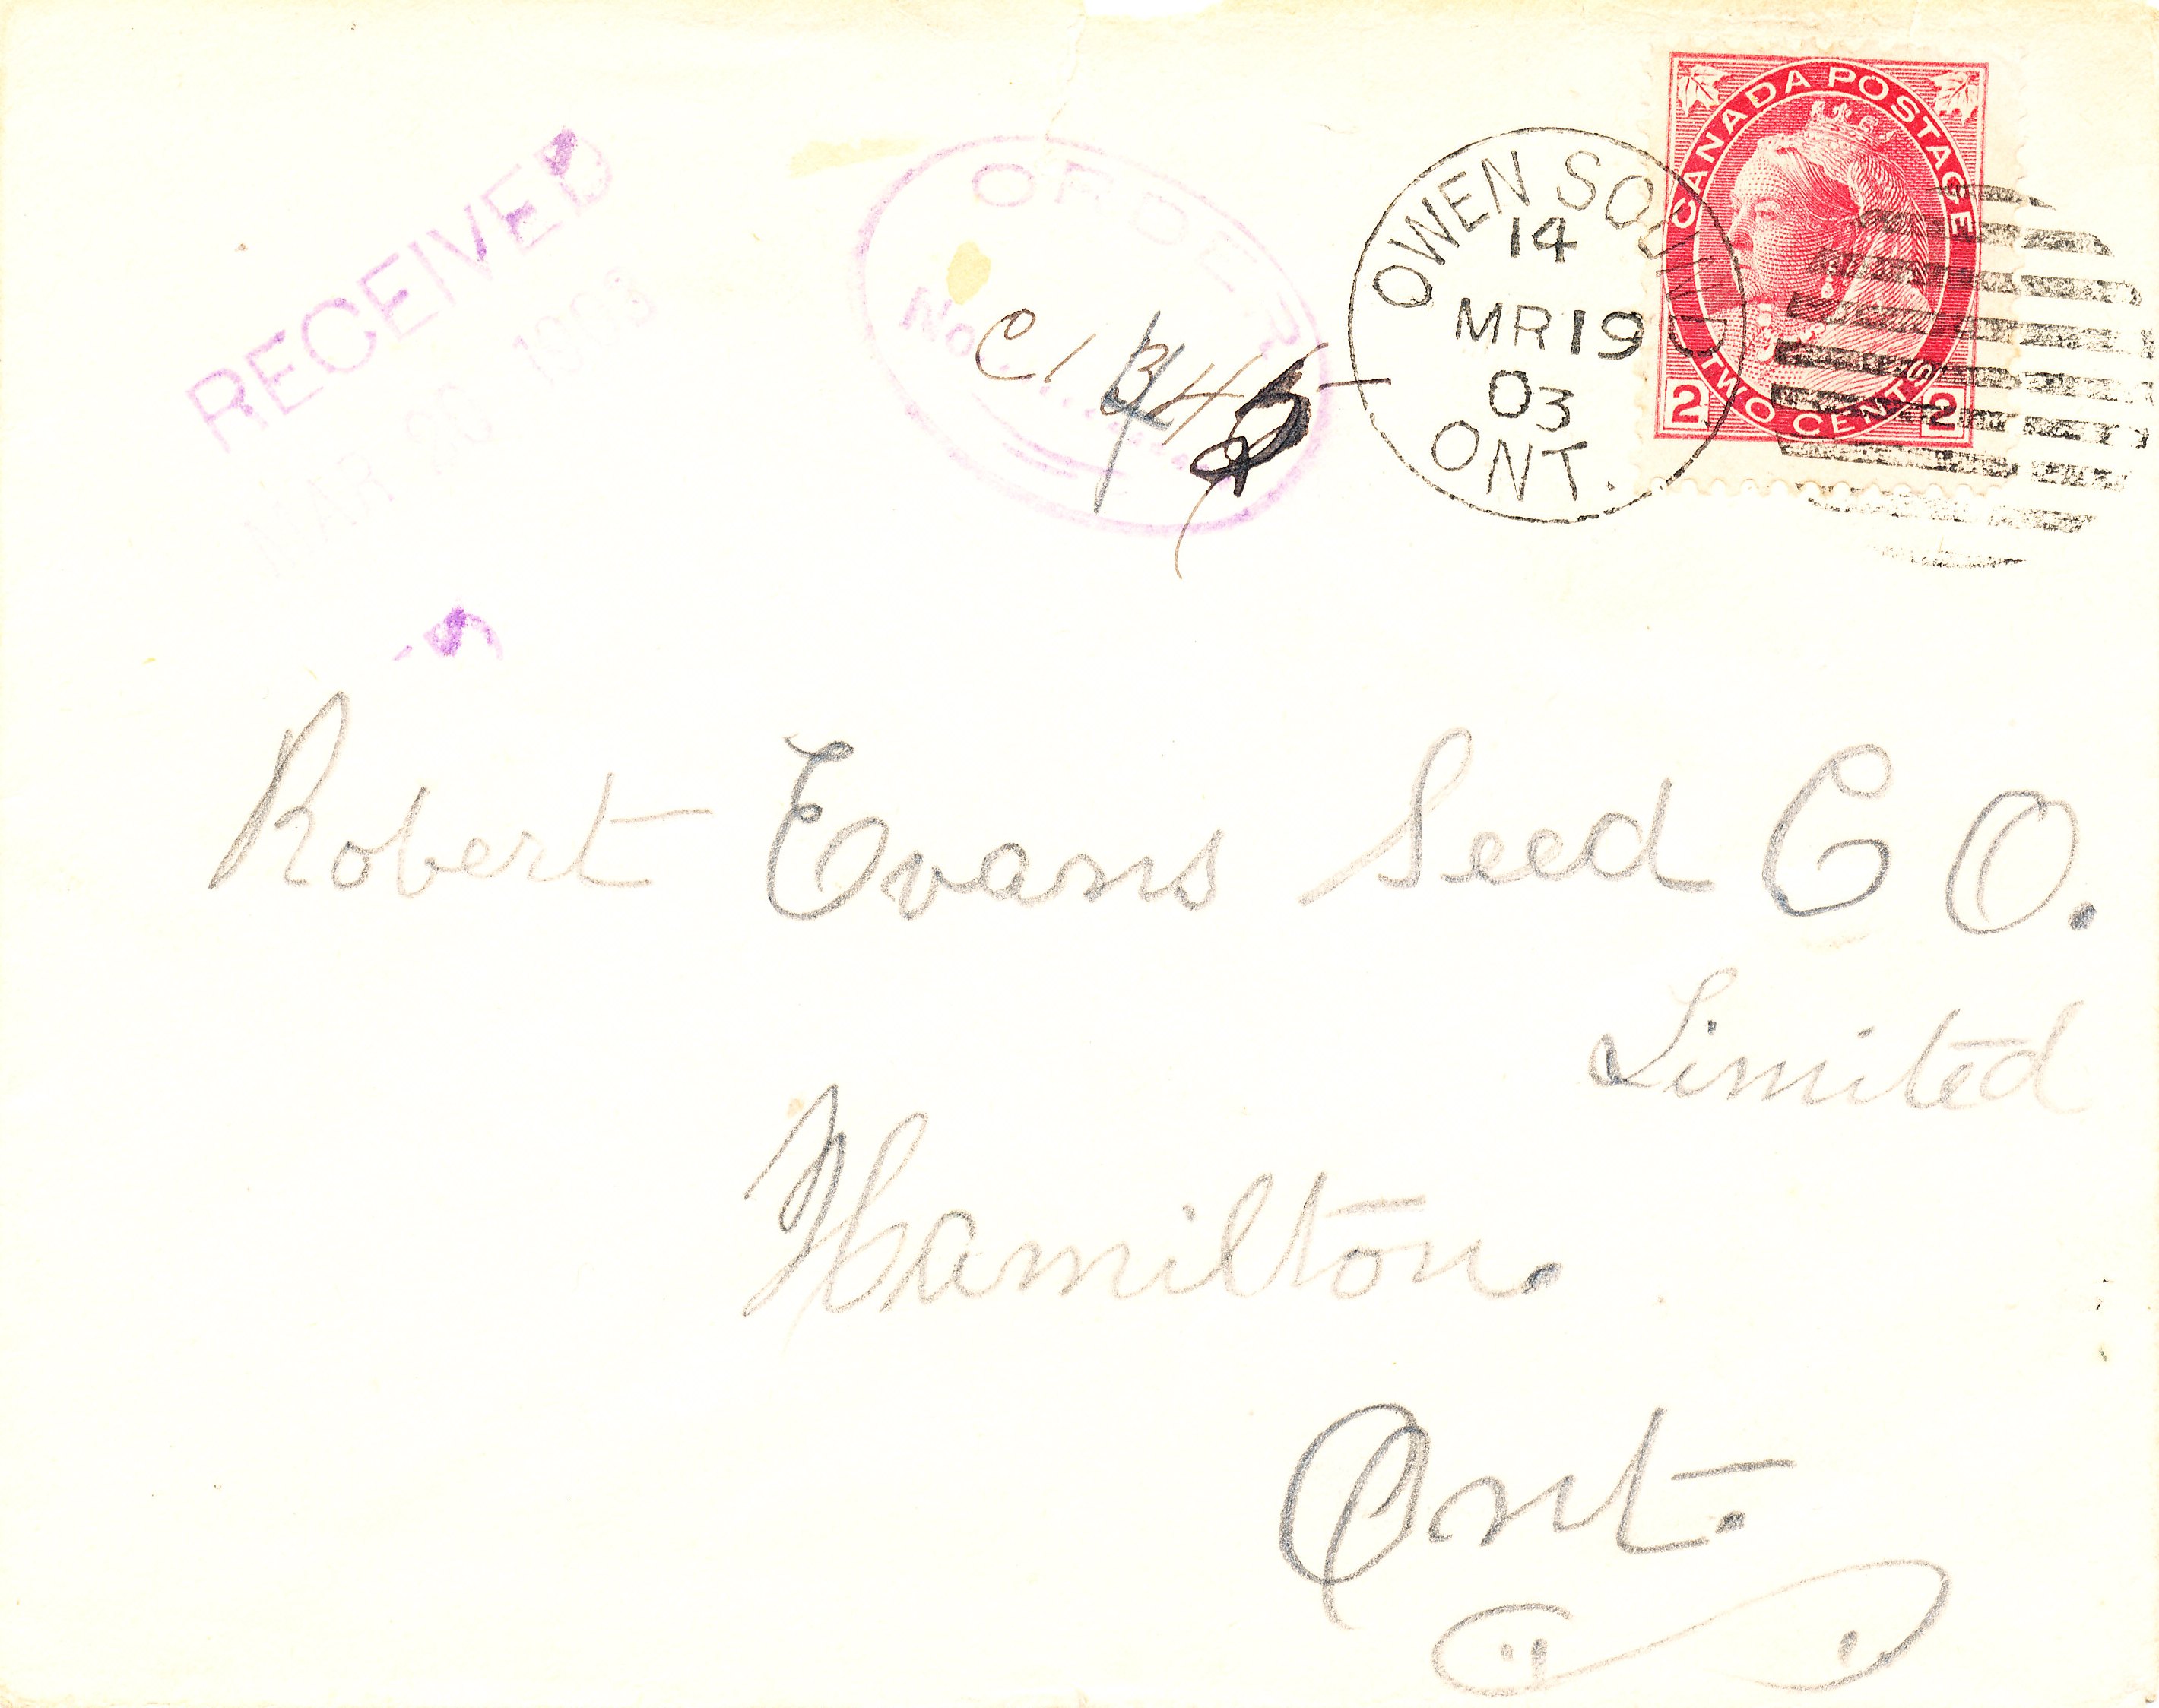 CANADA POSTAGE
TWO CENTS
2 2
OWEN SOUND
14
MR 19
03
ONT.
RECEIVED
MAR 20 1903
ORDER
No.
Robert Evans Seed CO.
Limited
Hamilton.
Ont.